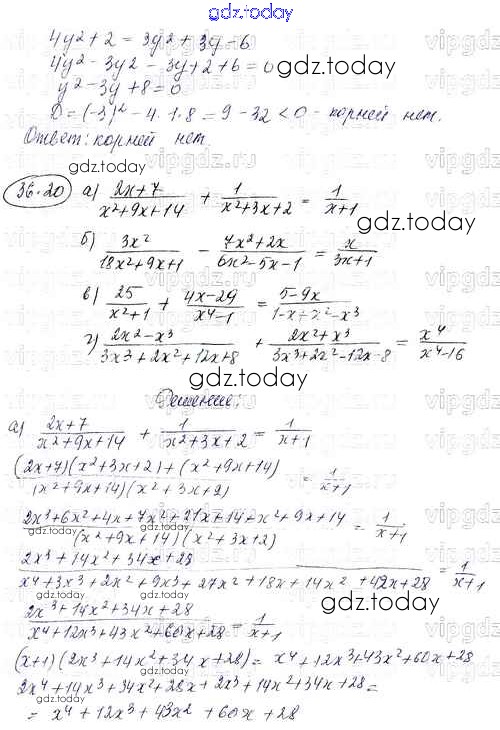 gdz.today
4y² + 2 = 3y² + 3y - 6
4y² - 3y² - 3y + 2 + 6 = 0
y² - 3y + 8 = 0
D = (-3)² - 4 · 1 · 8 = 9 - 32 < 0 - корней нет.
Ответ: корней нет.
36.20 а) (2x+7)/(x²+9x+14) + 1/(x²+3x+2) = 1/(x+1)
б) 3x²/(18x²+9x+1) - (7x²+2x)/(6x²-5x-1) = x/(3x+1)
в) 25/(x²+1) + (4x-29)/(x⁴-1) = (5-9x)/(1-x+x²-x³)
г) (2x²-x³)/(3x³+2x²+12x+8) + (2x²+x³)/(3x³+2x²-12x-8) = x⁴/(x⁴-16)
Решение:
а) (2x+7)/(x²+9x+14) + 1/(x²+3x+2) = 1/(x+1)
((2x+7)(x²+3x+2)+(x²+9x+14))/((x²+9x+14)(x²+3x+2)) = 1/(x+1)
(2x³+6x²+4x+7x²+21x+14+x²+9x+14)/((x²+9x+14)(x²+3x+2)) = 1/(x+1)
(2x³+14x²+34x+28)/(x⁴+3x³+2x²+9x³+27x²+18x+14x²+42x+28) = 1/(x+1)
(2x³+14x²+34x+28)/(x⁴+12x³+43x²+60x+28) = 1/(x+1)
(x+1)(2x³+14x²+34x+28) = x⁴+12x³+43x²+60x+28
2x⁴+14x³+34x²+28x+2x³+14x²+34x+28 =
= x⁴+12x³+43x²+60x+28